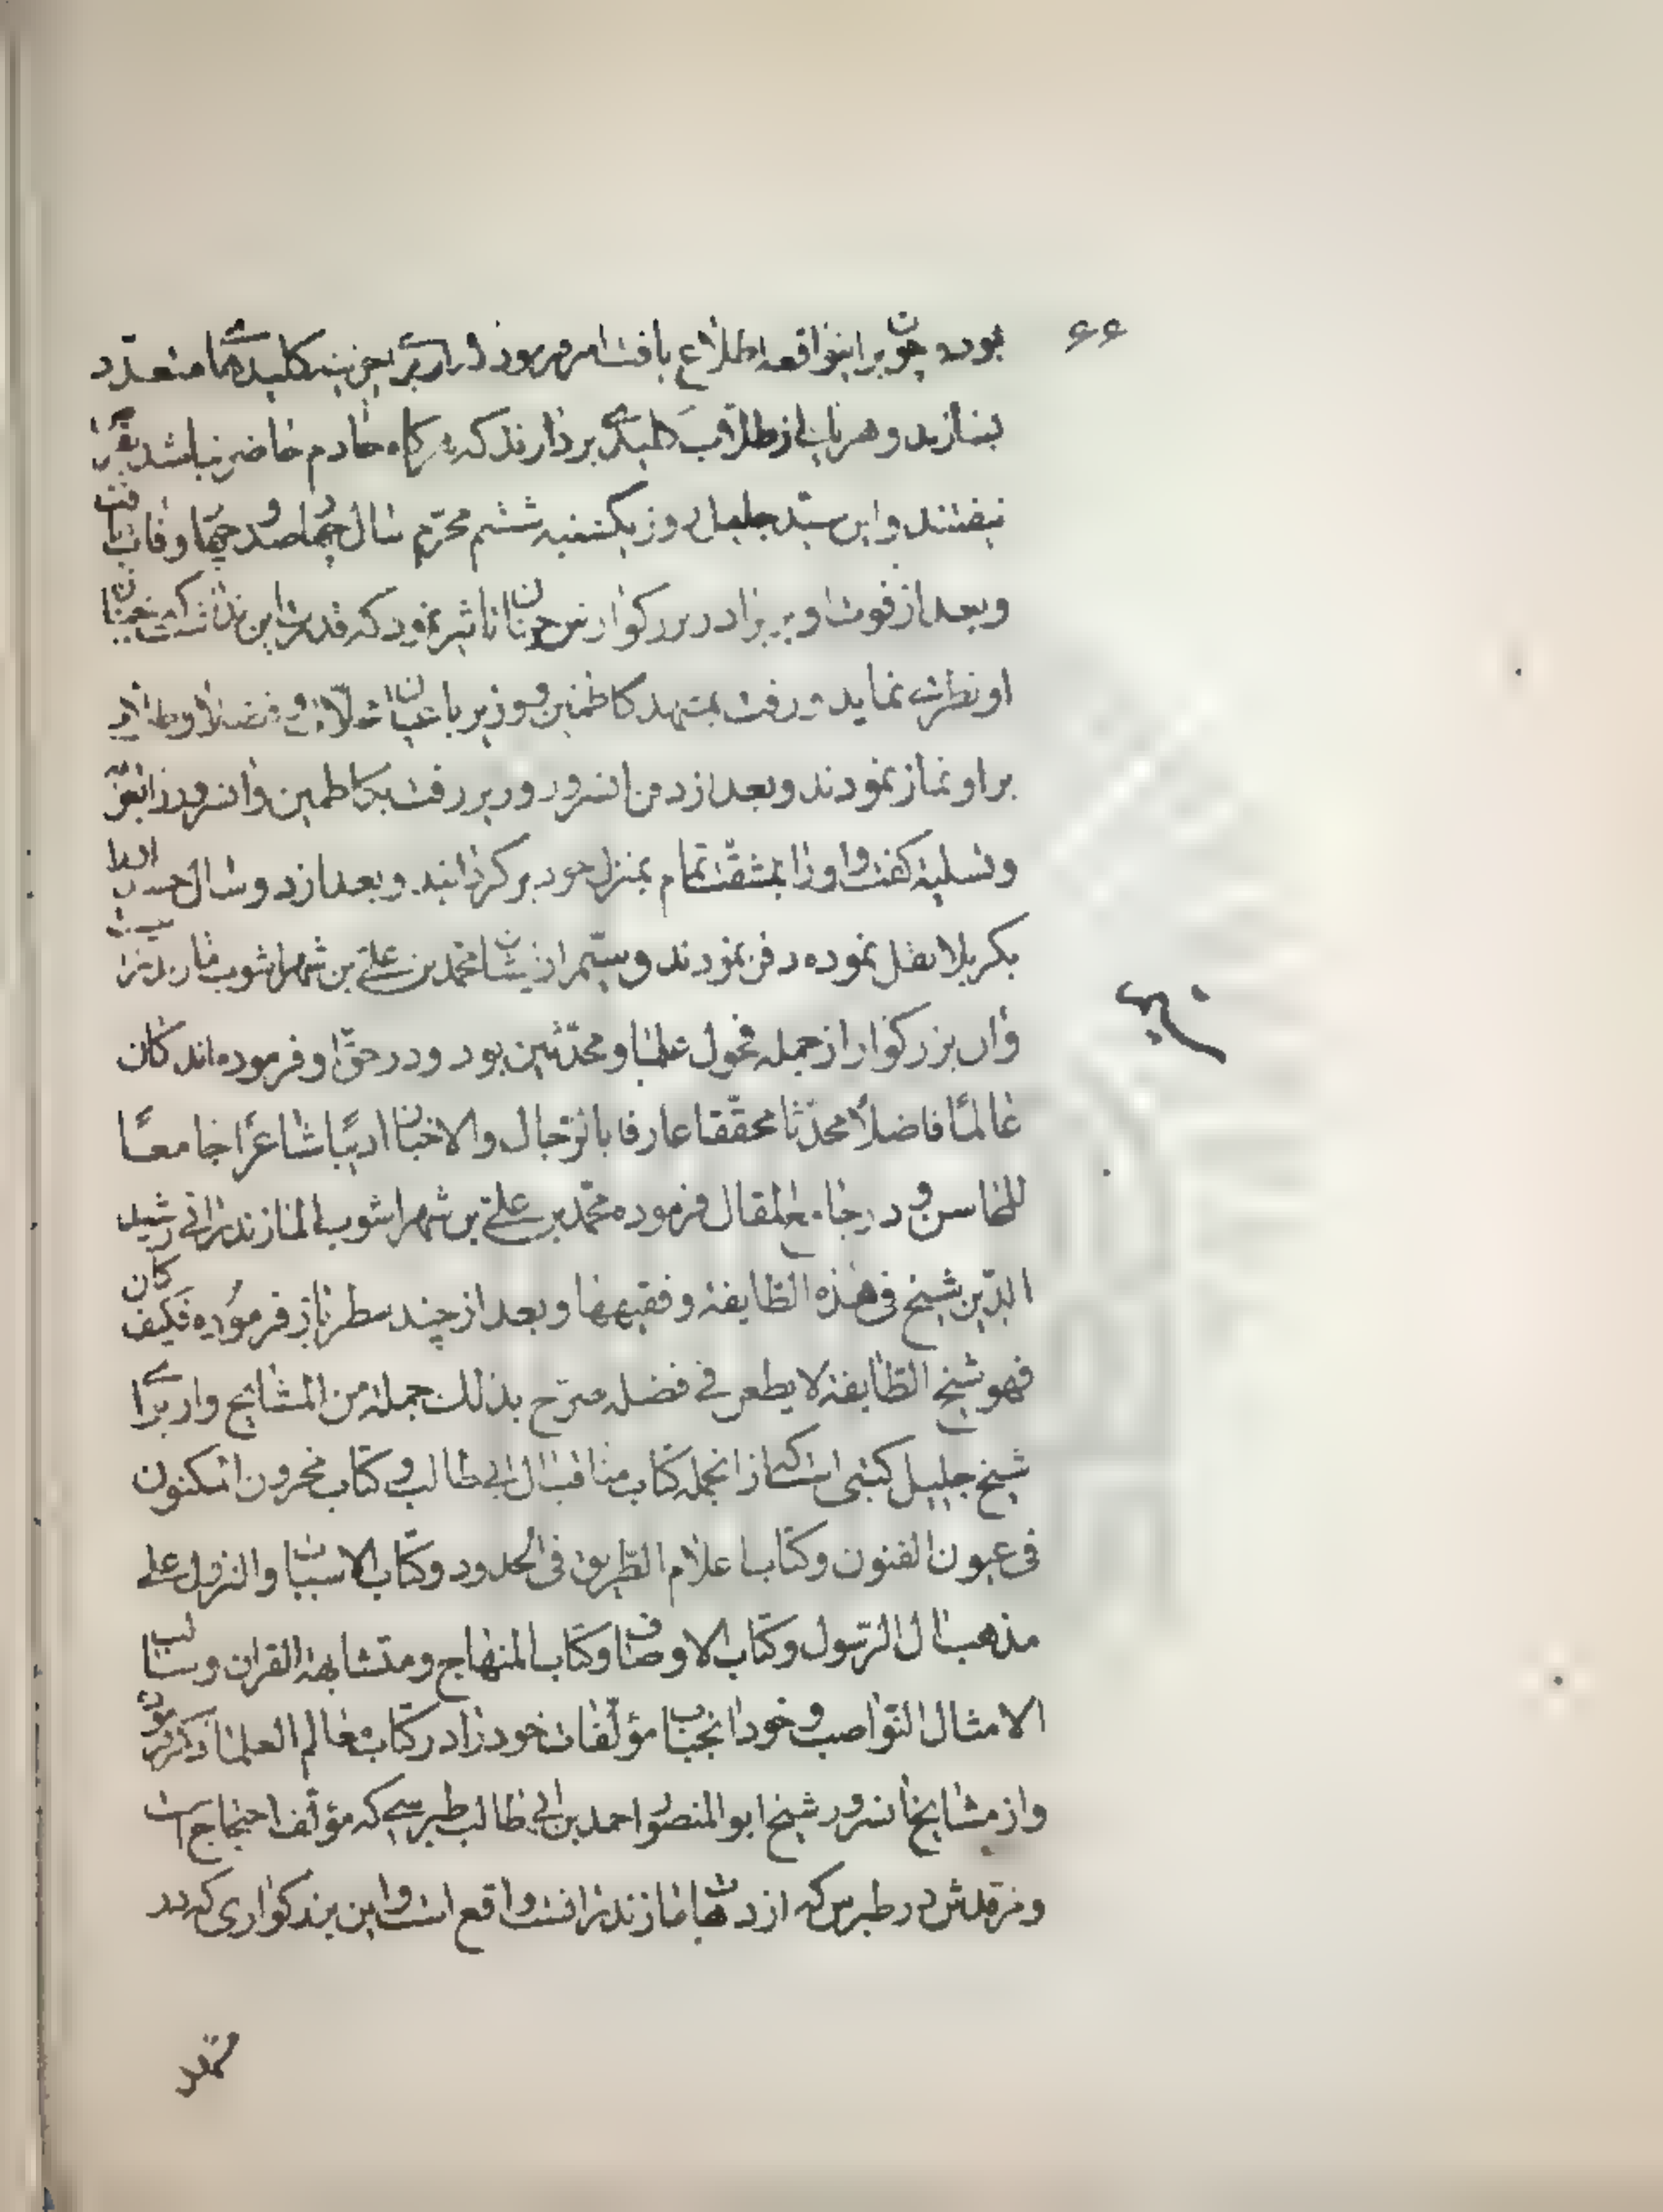 ۶۶
بوده چون بر اینواقعه اطلاع یافت امر فرمود از برای خزینه کلیدهای متعدد
بسازند و هر یک از طلاب کلیدی بردارند که هرگاه خادم حاضر نباشد بتعب
نیفتند و این سید جلیل روز یکشنبه ششم محرم سال چهارصد و چهار وفات یافت
و بعد از فوت او بر برادر بزرگوارش چنان تاثیر نمود که قدرت این نداشت که بجنازه
او نظر نماید و رفت بمشهد کاظمین و وزیر با اعیان و فضلا
بر او نماز نمودند و بعد از دفن انسرور وزیر رفت بکاظمین و انسرور را تعزیه
و تسلیه گفت و او را بمشقت تمام بمنزل خود برگردانید و بعد از دو سال جسد او را
بکربلا نقل نموده دفن نمودند و سیم از ایشان محمد بن علی بن شهراشوب مازندرانی
و ان بزرگوار از جمله فحول علما و محدثین بود و در حق او فرموده اند کان
عالمًا فاضلًا محدثا محققا عارفا بالرجال والاخبار ادیبًا شاعرًا جامعًا
للمحاسن و در جامع المقال فرموده محمد بن علی بن شهراشوب المازندرانی رشید
الدین شیخ فی هذه الطایفة و فقیهها و بعد از چند سطر باز فرموده فکیف کان
فهو شیخ الطایفة لا یطعن فی فضله صرح بذلک جملة من المشایخ و از برای
شیخ جلیل کتبی است که از انجمله کتاب مناقب ال ابی طالب و کتاب مخزون المکنون
فی عیون الفنون و کتاب اعلام الطریق فی الحدود و کتاب الاسباب والنزول علی
مذهب ال الرسول و کتاب الاوصاف و کتاب المنهاج و متشابه القران و
الامثال النواصب و خود انجناب مؤلفات خود را در کتاب معالم العلما ذکر فرموده
و از مشایخ انسرور شیخ ابو المنصور احمد بن ابی طالب طبرسی که مؤلف احتجاج است
و مرقدش در طبرس که از دهات مازندرانست واقع است و این بزرگواری که در